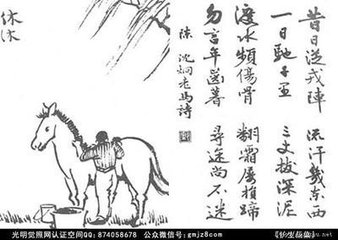 昔日從戎陣 流汗幾東西
一日馳千里 三丈拔深泥
渡水頻傷骨 翻霜屢損蹄
勿言年齒暮 尋途尚不迷
陳 沈炯老馬詩
休沐
光明觉照网认证空间QQ：874058678 公众微信号：gmjz8com